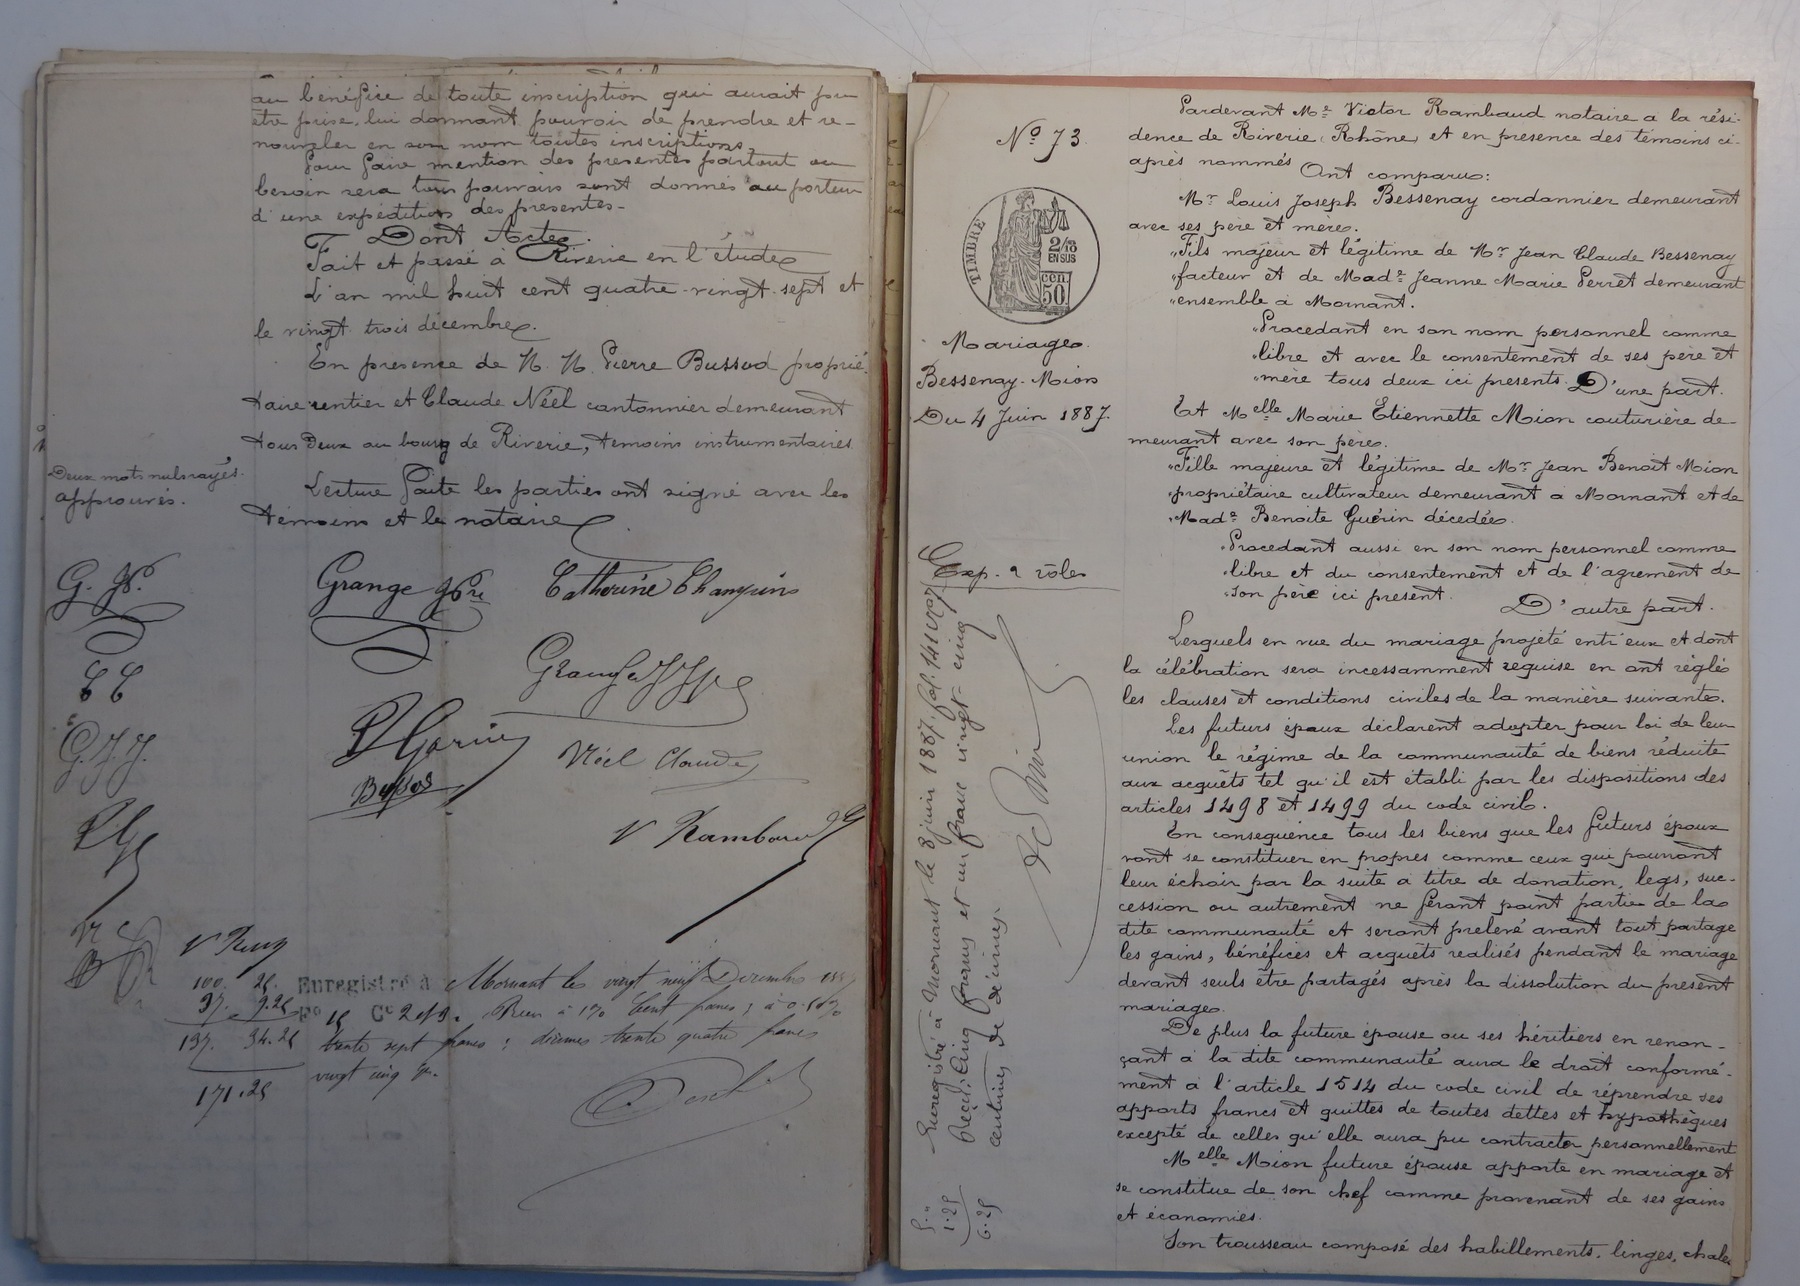 au bénéfice de toute inscription qui aurait pu
être prise, lui donnant pouvoir de prendre et re-
nouveler en son nom toutes inscriptions.
Pour faire mention des presentes partout ou
besoin sera tous pouvoirs sont donnés au porteur
d'une expédition des presentes-
Dont Acte.
Fait et passé à Riverie en l'étude
L'an mil huit cent quatre-vingt-sept et
le vingt trois décembre.
En presence de M. M. Pierre Bussod proprié-
taire rentier et Claude Néel cantonnier demeurant
tous deux au bourg de Riverie, témoins instrumentaires
Deux mots nuls rayés
approuvés.
Lecture faite les parties ont signé avec les
témoins et le notaire
G. Jph.
Grange Jph
Catherine
C C
Grange
G. J. J.
Néel Claude
V Rambaud
N C
B
100. 25.
37. 9.25
137. 34.25
171.25
Enregistré à Mornant le vingt neuf Decembre
Fo 15 Ce 2 et 9. Reçu à 1% Cent francs; à 0.50%
trente sept francs; décimes trente quatre francs
vingt cinq c.
No 73
TIMBRE
2/10
EN SUS
cen.
50
Mariage
Bessenay-Mion
Du 4 Juin 1887.
Exp. 2 rôles
Enregistré à Mornant le 8 juin 1887, fol. 141
Reçu: Cinq francs et un franc vingt-cinq
centimes de décimes.
5.,,
1.25
6.25
Pardevant Me Victor Rambaud notaire a la rési-
dence de Riverie (Rhône) et en presence des témoins ci-
après nommés
Ont comparu:
Mr Louis Joseph Bessenay cordonnier demeurant
avec ses père et mère.
"Fils majeur et légitime de Mr Jean Claude Bessenay
"facteur et de Made Jeanne Marie Perret demeurant
"ensemble à Mornant.
"Procedant en son nom personnel comme
"libre et avec le consentement de ses père et
"mère tous deux ici presents. D'une part.
Et Melle Marie Etiennette Mion couturière de-
meurant avec son père.
"Fille majeure et légitime de Mr Jean Benoit Mion
"propriétaire cultivateur demeurant à Mornant et de
"Made Benoite Guérin décedée.
"Procedant aussi en son nom personnel comme
"libre et du consentement et de l'agrement de
"son père ici present.
D'autre part.
Lesquels en vue du mariage projeté entr'eux et dont
la célébration sera incessamment requise en ont réglé
les clauses et conditions civiles de la manière suivante.
Les futurs époux déclarent adopter pour loi de leur
union le régime de la communauté de biens réduite
aux acquêts tel qu'il est établi par les dispositions des
articles 1498 et 1499 du code civil.
En conséquence tous les biens que les futurs époux
vont se constituer en propres comme ceux qui pourront
leur échoir par la suite à titre de donation, legs, suc-
cession ou autrement ne feront point partie de la
dite communauté et seront prelevé avant tout partage
les gains, bénéfices et acquets realisés pendant le mariage
devant seuls être partagés après la dissolution du present
mariage.
De plus la future épouse ou ses héritiers en renon-
çant à la dite communauté aura le droit conformé-
ment à l'article 1514 du code civil de réprendre ses
apports francs et quittes de toutes dettes et hypothèques
excepté de celles qu'elle aura pu contracter personnellement
Melle Mion future épouse apporte en mariage et
se constitue de son chef comme provenant de ses gains
et économies.
Son trousseau composé des habillements, linges,